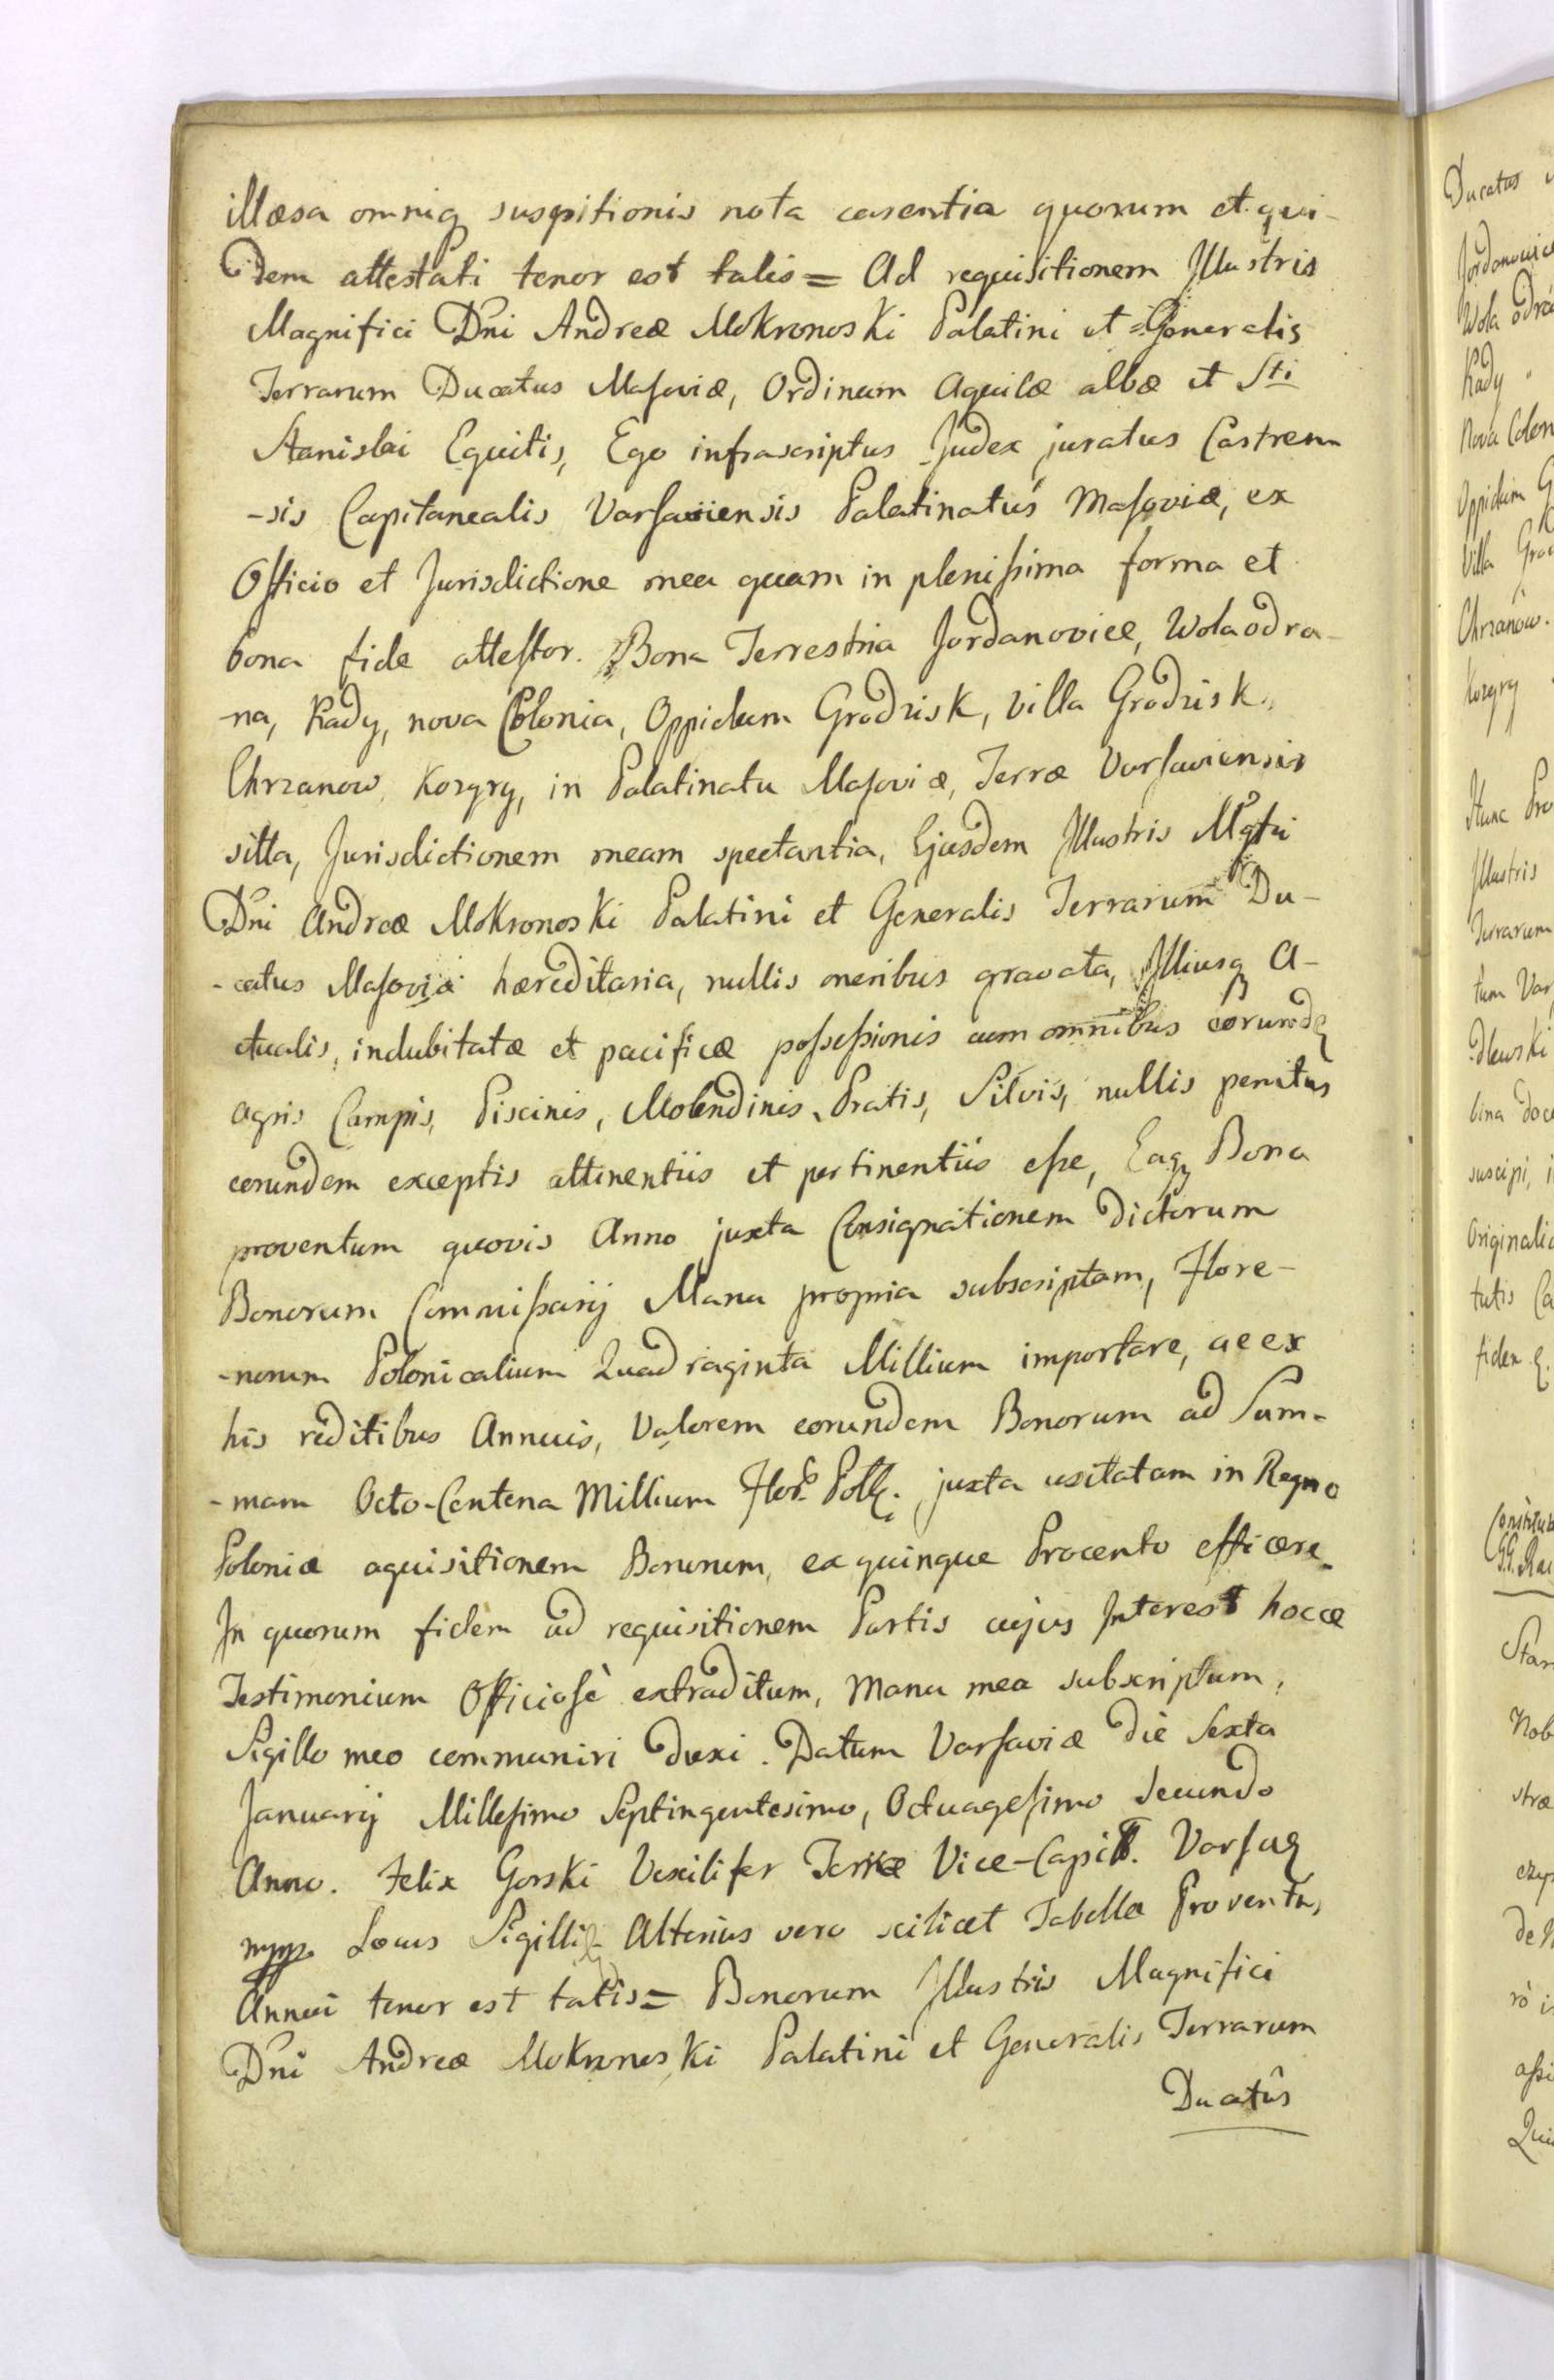 illæsa omniq suspitionis nota carentia quorum et qui-
dem attestati tenor est talis = Ad requisitionem Illustris
Magnifici Dni Andreæ Mokronoski Palatini et Generalis
Terrarum Ducatus Masoviæ, Ordinum Aquilæ albæ et Sti
Stanislai Equitis, Ego infrascriptus Judex juratus Castren
-sis Capitanealis Varsaviensis Palatinatus Masoviæ, ex
Officio et Jurisdictione mea quam in plenissima forma et
bona fide attestor. Bona Terrestria Jordanovice, Wolaodra-
na, Kady, nova Colonia, Oppidum Grodzisk, villa Grodzisk,
Chrzanow, Kozyry, in Palatinatu Masoviæ, Terræ Varsaviensis
sitta, Jurisdictionem meam spectantia, Ejusdem Illustris Mgfci
Dni Andreæ Mokronoski Palatini et Generalis Terrarum Du-
-catus Masoviæ hæreditaria, nullis oneribus gravata, Illiusq A-
ctualis, indubitatæ et pacificæ possessionis cum omnibus eorundq
agris Campis, Piscinis, Molendinis, Pratis, Silvis, nullis penitus
eorundem exceptis attinentiis et pertinentiis esse, Eaq Bona
proventum quovis Anno juxta Consignationem dictorum
Bonorum Commissarij Manu propria subscriptam, Flore-
-norum Polonicalium Quadraginta Millium importare, ac ex
his reditibus Annuis, Valorem eorundem Bonorum ad Sum-
-mam Octo-Centena Millium Flor. Poll. juxta usitatam in Regno
Poloniæ aquisitionem Bonorum, ex quinque Procento efficere.
In quorum fidem ad requisitionem Partis cujus Interest hocce
Testimonium Officiosè extraditum, Manu mea subscriptum,
Sigillo meo communiri duxi. Datum Varsaviæ die Sexta
Januarij Millesimo Septingentesimo, Octuagesimo Secundo
Anno. Felix Gorski Vexilifer Terræ Vice-Capitt. Varsaq
mpp. Locus Sigilli. Alterius vero scilicet Tabella Proventus
Annui tenor est talis = Bonorum Illustris Magnifici
Dni Andreæ Mokronoski Palatini et Generalis Terrarum
Ducatûs
Ducatus
Wola
Kady
Nova Colon
Oppidum G
Villa
Chrzanow.
Kozyry
Illustris
Terrarum
tum Var
suscipi, i